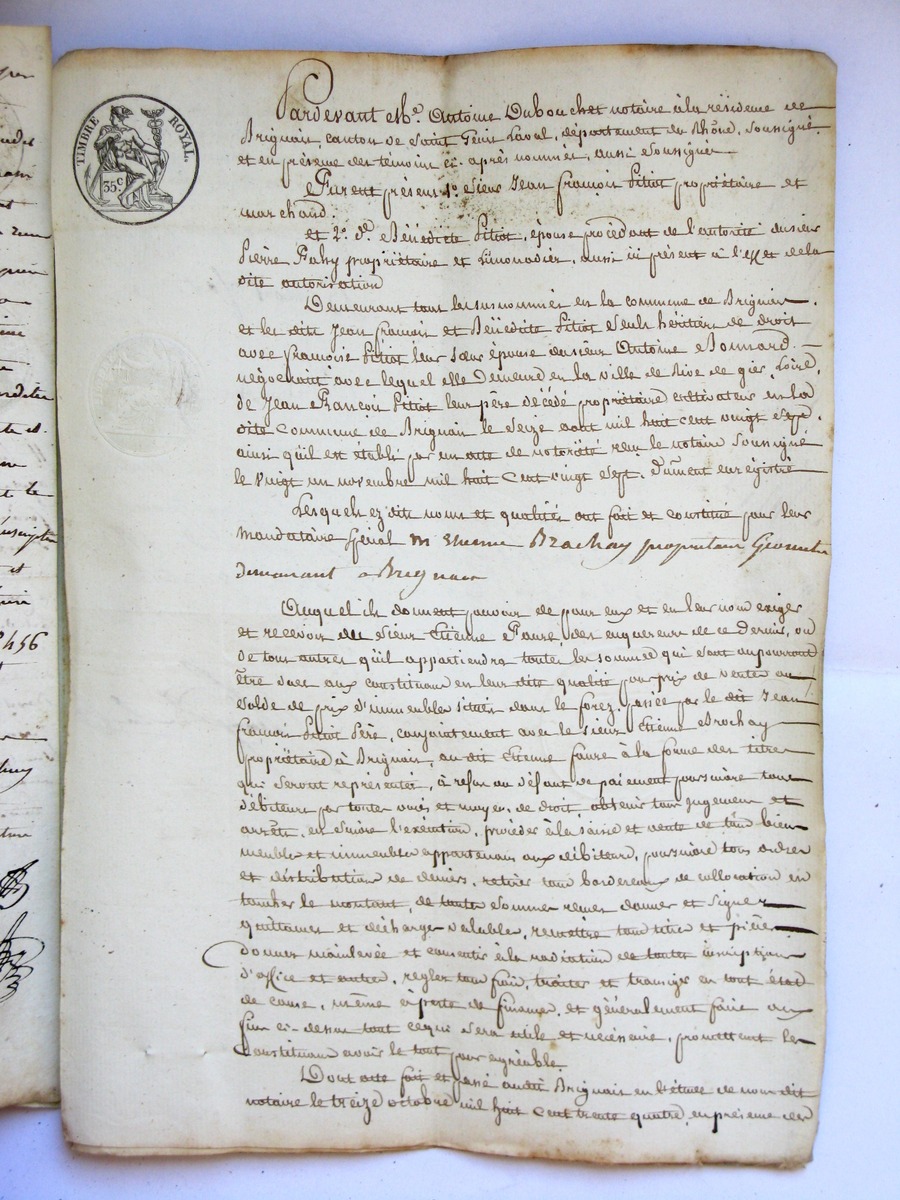 TIMBRE ROYAL.
35 c
Pardevant Me. Antoine Dubouchet notaire à la résidence de
Brignais, canton de Saint Genis Laval, département du Rhône, soussigné
et en présence des témoins ci-après nommés, aussi soussignés
Furent présens 1o. Sieur Jean François Pitiot propriétaire et
marchand.
et 2o. De. Bénédicte Pitiot, épouse procédant de l'autorité du sieur
Pierre Fahy propriétaire et limonadier, aussi ici présent à l'effet de la
dite autorisation
Demeurant tous les susnommés en la commune de Brignais.
et les dits Jean François et Bénédicte Pitiot seuls héritiers de droit
avec Françoise Pitiot leur sœur épouse du sieur Antoine Bonnard
négociant avec lequel elle demeure en la ville de Rive de gier, Loire,
de Jean François Pitiot leur père décédé propriétaire cultivateur en la
dite commune de Brignais le seize août mil huit cent vingt sept.
ainsi qu'il est établi par un acte de notoriété reçu le notaire soussigné
le vingt un novembre mil huit cent vingt sept, dûment enregistré
Lesquels ez dits noms et qualités ont fait et constitué pour leur
mandataire spécial m Etienne Brachay propriétaire Géomètre
demeurant a Brignais
Auquel ils donnent pouvoir de pour eux et en leur nom exiger
et recevoir du sieur Etienne Faure, des acquéreurs de ce dernier, ou
de tous autres qu'il appartiendra toutes les sommes qui sont ou pourront
être dues aux constituans en leur dite qualité pour prix de ventes ou
solde de prix d'immeubles situés dans le forez, passées par le dit Jean
François Pitiot Père, conjointement avec le sieur Etienne Brochay
propriétaire à Brignais, au dit Etienne Faure à la forme des titres
qui seront représentés, à refus ou défaut de paiement poursuivre tous
débiteurs par toutes voies et moyens de droit, obtenir tous jugemens et
arrêts, en suivre l'exécution, procéder à la saisie et vente de tous biens
meubles et immeubles appartenans aux débiteurs, poursuivre tous ordres
et distributions de deniers, retirer tous bordereaux de collocation en
toucher le montant, de toutes sommes reçues donner et signer
quittances et décharges valables, remettre tous titres et pièces
donner mainlevée et consentir à la radiation de toutes inscriptions
d'office et autres, régler tous frais, traiter et transiger en tout état
de cause, même à perte de finances, et généralement faire aux
fins ci-dessus tout ce qui sera utile et nécessaire, promettant les
constituans avoir le tout pour agréable
Dont acte fait et passé au dit Brignais en l'étude de nous dit
notaire le treize octobre mil huit cent trente quatre, en présence des